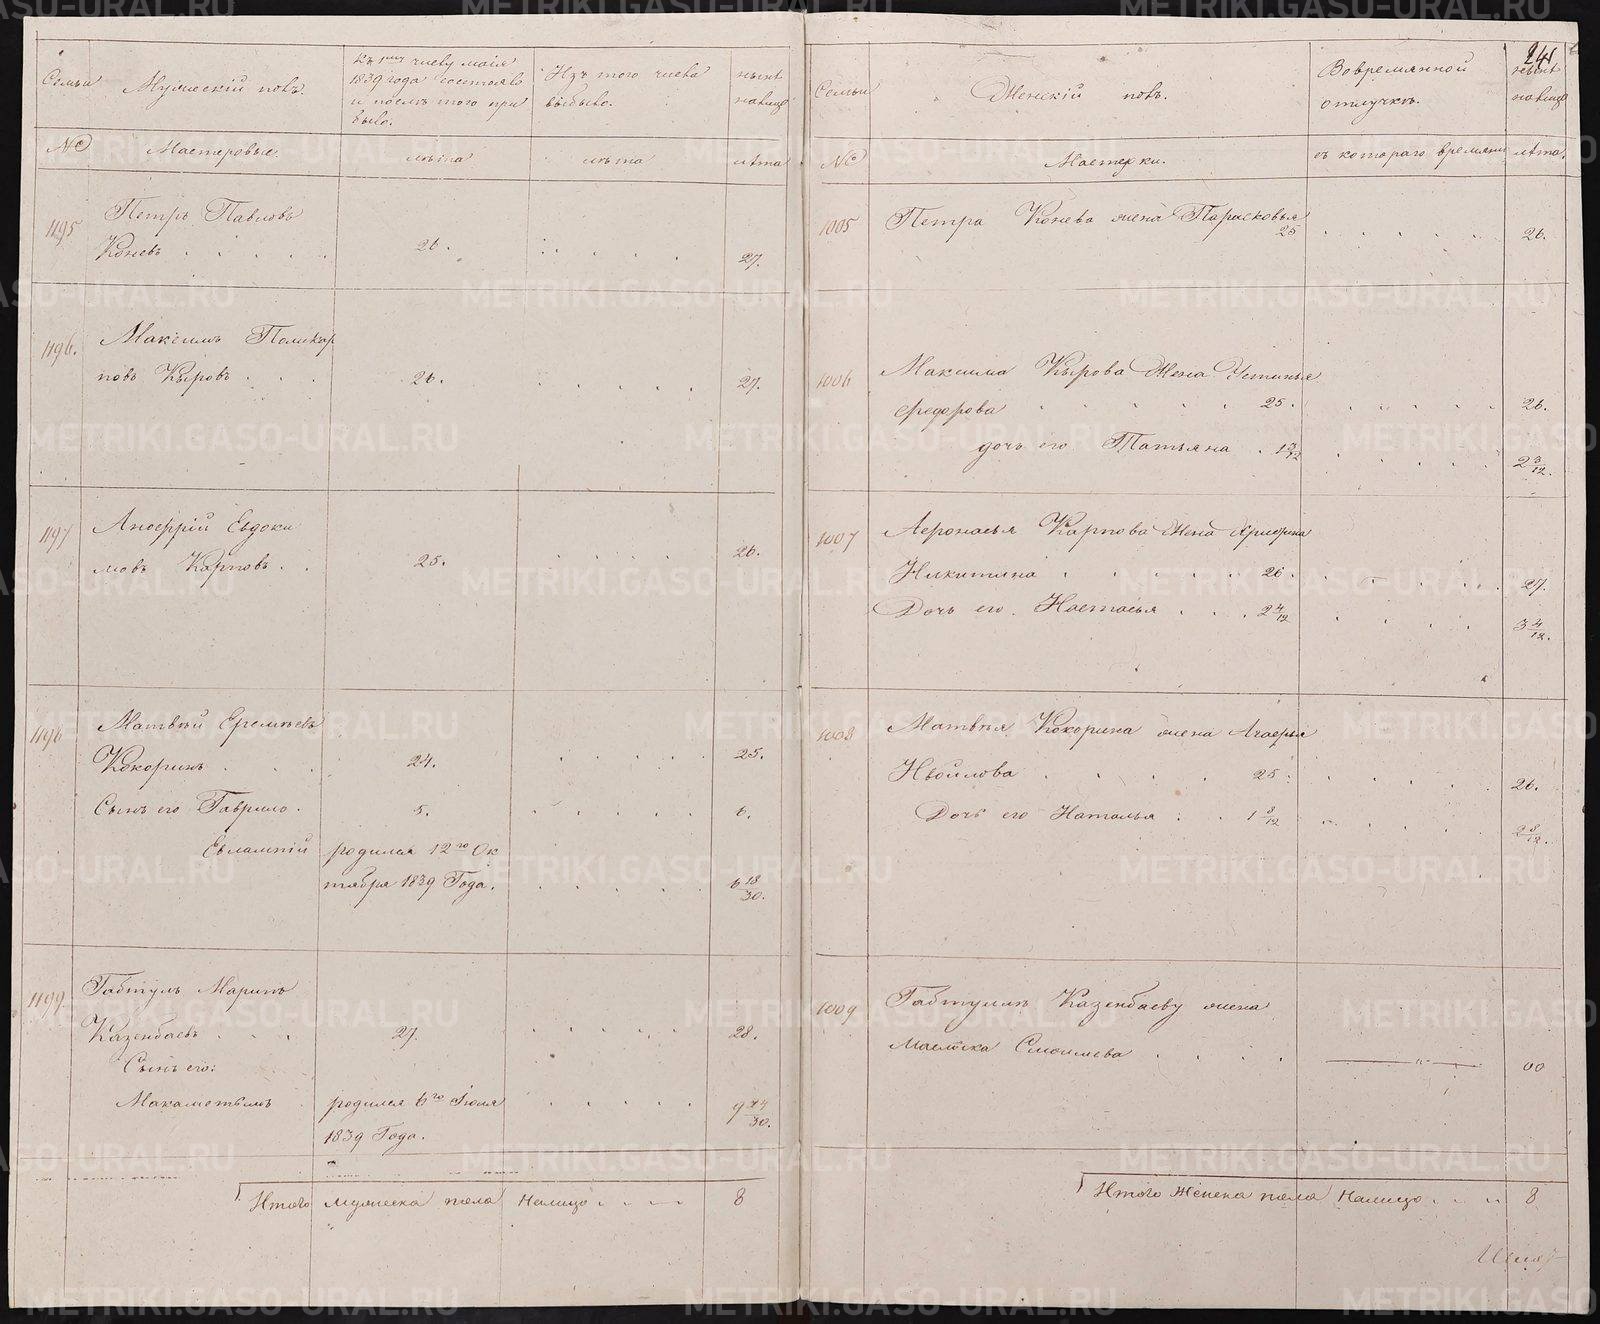 Семьи
Мужескій полъ.
Къ 1му числу маія
1839 года состояло
и послѣ того при
было.
Изъ того числа
выбыло.
нынѣ
налицо
№
Мастеровые.
лѣта
лѣта
лѣта
1195
Петръ Павловъ
Коневъ . . . . .
26.
27.
1196.
Максимъ Поликар
повъ Кыровъ . . .
26.
27.
1197
Аноѳрій Евдоки
мовъ Карповъ . .
25.
26.
1198
Матвѣй Еремѣевъ
Кокоринъ . . .
24.
25.
Сынъ его Гаврило.
5.
6.
Евлампій
родился 12го Ок
тября 1839 Года.
6 18/30.
1199
Габтулъ Маринъ
Казенбаевъ . . .
27.
28.
Сынъ его:
родился 6го Іюля
1839 Года.
9 24/30.
Итого мужеска пола налицо . . . .
8
241
Семьи
Женскій полъ.
Вовремянной
отлучкѣ.
нынѣ
налицо
№
Мастерки.
съ котораго времяни
лѣта.
1005
Петра Конева жена Парасковья
25
26.
1006
Максима Кырова Жена Устинья
Федорова . . . . . . 25.
26.
дочь его Татьяна . 1 3/12
2 3/12.
1007
Карпова Жена
Никитина . . . . . 26.
27.
Дочь его. Настасья . . . 2 4/12
3 4/12.
1008
Матвѣя Кокорина жена Агафья
25.
26.
Дочь его Наталья . . 1 8/12
2 8/12.
1009
Габтуллъ Казенбаеву жена
00
Итого Женска пола налицо . . . .
8